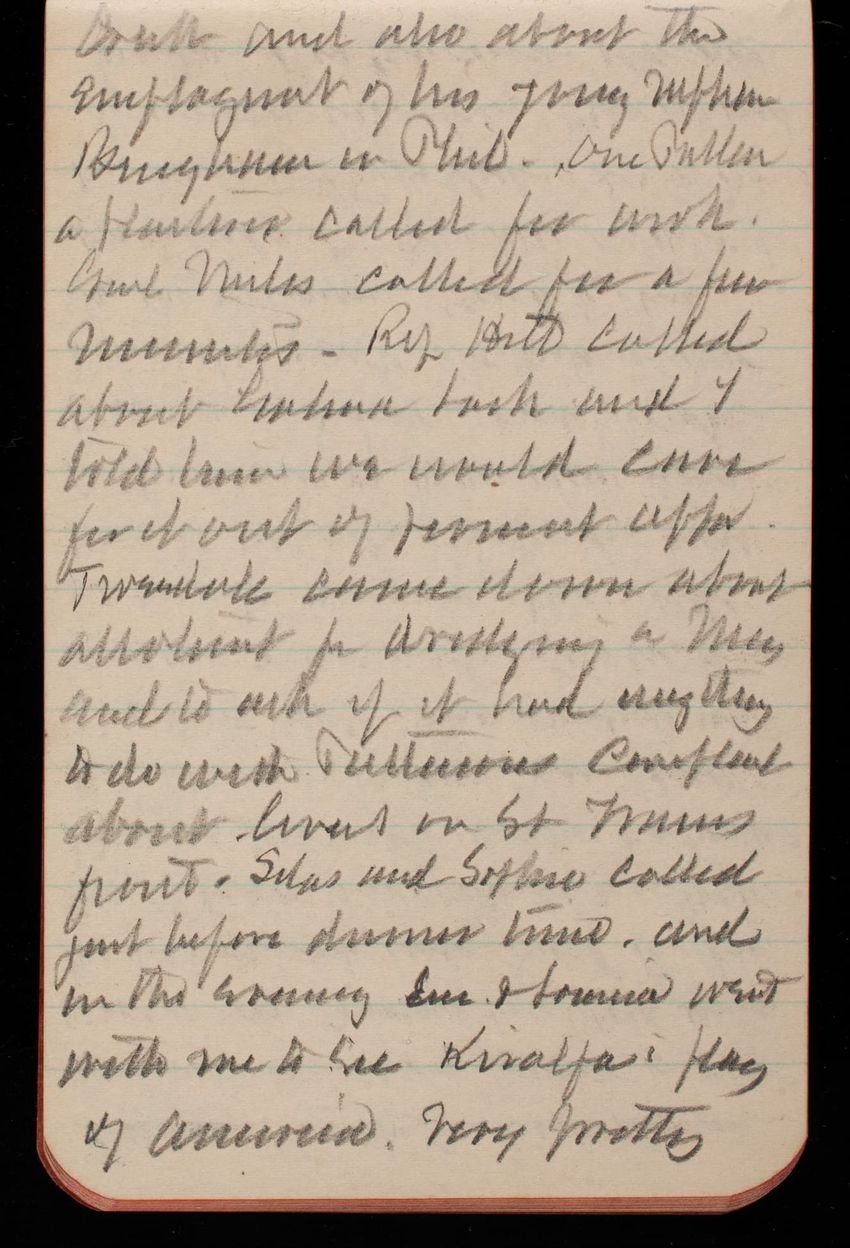 and also about the
employment of his young nephew
Bingham in Phil. One Fuller
a called for work.
Genl Miles called for a few
minutes - Rep Hitt called
about Galena lock and I
told him we would care
for it out of present appr.
Twombly came down about
allotment for dredging a
and to ask if it had anything
to do with Complaint
about on St
front. Silas and Sophie called
just before dinner time. and
in the evening Eva & went
with me to see Kiralfas' play
of America. Very pretty